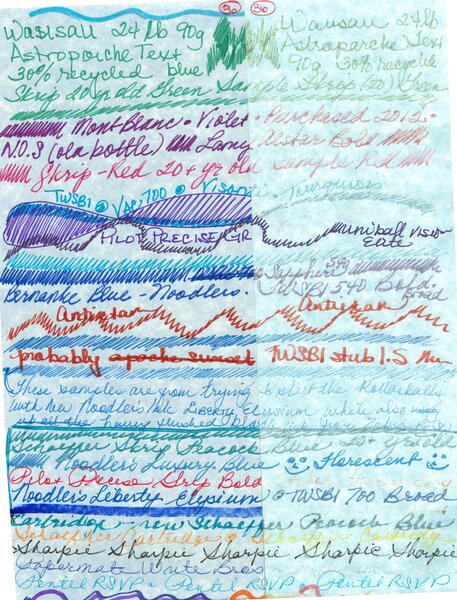 30 30
Wausau 24 lb 90g Wausau 24 lb
Astroparche Text Astraparche Text
30% recycled blue 90g 30% recycled
Skrip 20 yr old Green Sample Skrip (20) Green
MontBlanc - Violet - Purchased 2012 -
N.O.S (old bottle) Lamy Alstar Bold
Skrip - Red 20+ yr old Sample Red
TWSBI @ VAC 700 @ Vision Turquoise
PILOT PRECISE GR uniball VISION
ELITE
Sapphire
Bernanke Blue - Noodlers. TWSBI 540 Bold.
Broad
Antietam Antietam
probably apache sunset TWSBI stub 1.5
These samples are from trying to
with new Noodlers Ink LIBERTY Elysium while also
up all the
Schaeffer Skrip Peacock Blue - 20+ yrs old
Noodler's Luxury Blue Florescent
Pilot Precise Grip Bold
Noodler's Liberty Elysium @ TWSBI 700 Broad
Cartridge - new Schaeffer Peacock Blue
Schaeffer Cartridge Schaeffer Cartridge
Sharpie Sharpie Sharpie Sharpie Sharpie
Papermate Write Bros
Pentel RSVP Pentel RSVP Pentel RSVP